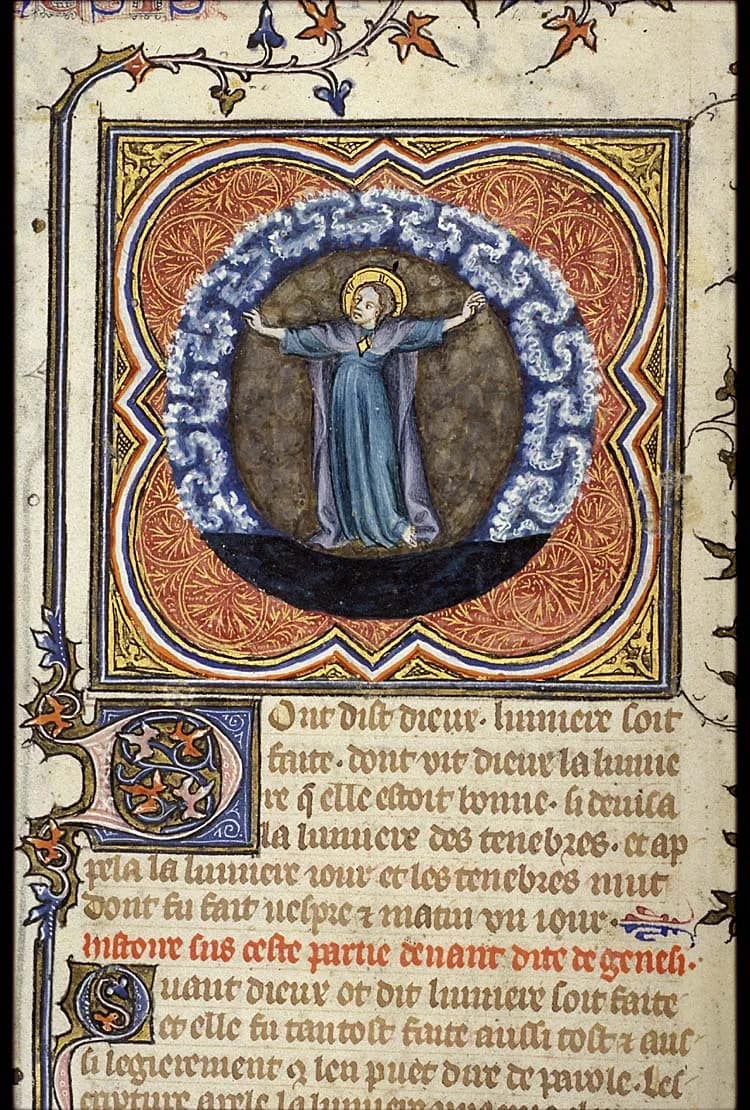 Dont dist dieux. lumiere soit
faite. dont vit dieux la lumie
re q̃ elle estoit bonne. si deuisa
la lumiere des tenebres. et ap
pela la lumiere iour et les tenebres nuit
dont fu fait uespre ⁊ matin vn iour.
histoire sus ceste partie deuant dite de genesi.
Quant dieux ot dit lumiere soit faite
et elle fu tantost faite aussi tost ⁊ aus
si legierement ꝯ len puet dire de parole. Les
cripture apele la lumiere